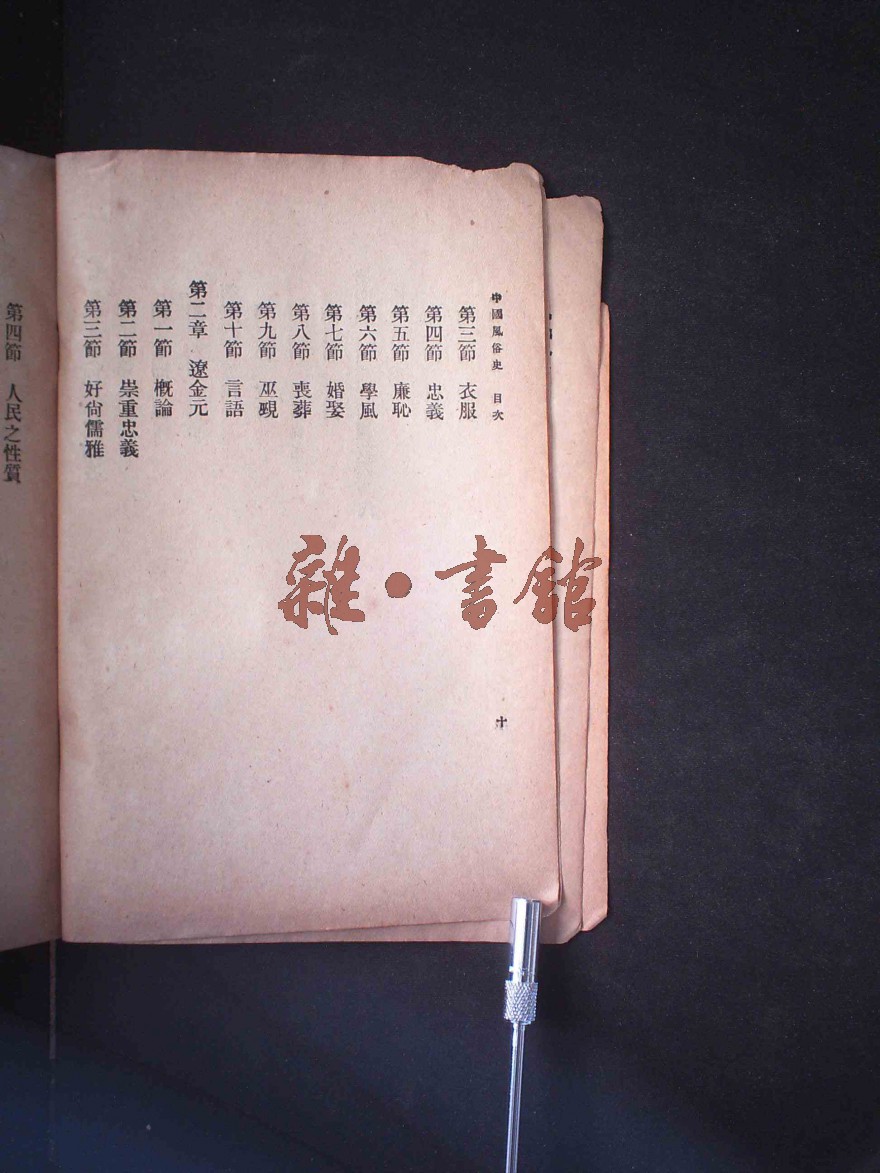 中國風俗史 目次
第三節 衣服
第四節 忠義
第五節 廉恥
第六節 學風
第七節 婚娶
第八節 喪葬
第九節 巫覡
第十節 言語
第二章 遼金元
第一節 概論
第二節 崇重忠義
第三節 好尙儒雅
十
第四節 人民之性質
雜·書館